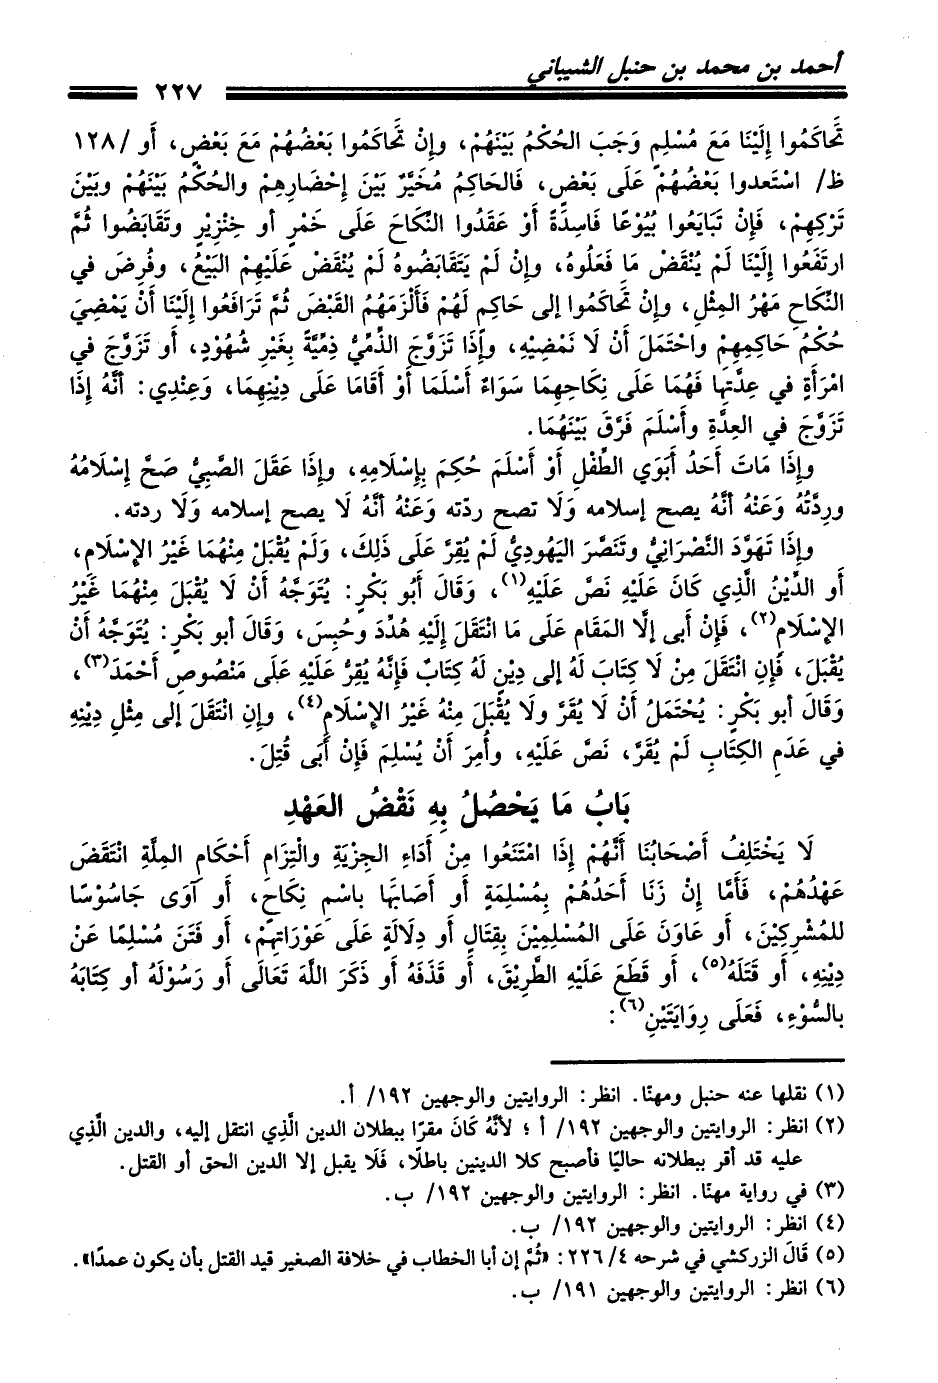 أحمد بن محمد بن حنبل الشيباني
٢٢٧
تَحَاكَمُوا إِلَيْنَا مَعَ مُسْلِمٍ وَجَبَ الحُكْمُ بَيْنَهُمْ، وإنْ تَحَاكَمُوا بَعْضُهُمْ مَعَ بَعْضٍ، أَو /١٢٨
ظ/ اسْتَعدوا بَعْضُهُمْ عَلَى بَعْضٍ، فَالحَاكِمُ مُخَيَّرٌ بَيْنَ إحْضَارِهِمْ والحُكْمُ بَيْنَهُمْ وبَيْنَ
تَرْكِهِمْ، فَإنْ تَبَايَعُوا بُيُوْعًا فَاسِدَةً أَوْ عَقَدُوا النِّكَاحَ عَلَى خَمْرٍ أو خِنْزِيْرٍ وتَقَابَضُوا ثُمَّ
ارتَفَعُوا إلَيْنَا لَمْ يُنْقَضْ مَا فَعَلُوهُ، وإنْ لَمْ يَتَقَابَضُوهُ لَمْ يُنْقَضْ عَلَيْهِمْ البَيْعُ، وفُرِضَ في
النِّكَاحِ مَهْرُ المِثْلِ، وإنْ تَحَاكَمُوا إلى حَاكِمٍ لَهُمْ فَأَلْزَمَهُمُ القَبْضَ ثُمَّ تَرَافَعُوا إلَيْنَا أَنْ يَمْضِيَ
حُكْمُ حَاكِمِهِمْ واحْتَمَلَ أَنْ لَا نَمْضِيْهِ، وإذَا تَزَوَّجَ الذِّمِّيُّ ذِمِّيَّةً بِغَيْرِ شُهُوْدٍ، أَو تَزَوَّجَ في
امْرَأَةٍ في عِدَّتِهَا فَهُمَا عَلَى نِكَاحِهِمَا سَوَاءٌ أَسْلَمَا أَوْ أَقَامَا عَلَى دِيْنِهِمَا، وَعِنْدِي: أنَّهُ إذَا
تَزَوَّجَ في العِدَّةِ وأَسْلَمَ فَرَّقَ بَيْنَهُمَا.
وإذَا مَاتَ أَحَدُ أبَوَي الطِّفْلِ أَوْ أَسْلَمَ حُكِمَ بِإسْلَامِهِ، وإذَا عَقَلَ الصَّبِيُّ صَحَّ إسْلَامُهُ
ورِدَّتُهُ وَعَنْهُ أنَّهُ يصح إسلامه وَلَا تصح ردّته وَعَنْهُ أنَّهُ لَا يصح إسلامه وَلَا ردته.
وإذَا تَهَوَّدَ النَّصْرَانِيُّ وتَنَصَّرَ اليَهُودِيُّ لَمْ يُقِرَّ عَلَى ذَلِكَ، وَلَمْ يُقْبَلْ مِنْهُمَا غَيْرُ الإسْلَامِ،
أَو الدِّيْنُ الَّذِي كَانَ عَلَيْهِ نَصَّ عَلَيْهِ(١)، وَقَالَ أَبُو بَكْرٍ: يُتَوَجَّهُ أَنْ لَا يُقْبَلَ مِنْهُمَا غَيْرُ
الإسْلَامِ(٢)، فَإنْ أبى إلَّا المَقَام عَلَى مَا انْتَقَلَ إلَيْهِ هُدِّدَ وحُبِسَ، وَقَالَ أبو بَكْرٍ: يُتَوَجَّهُ أَنْ
يُقْبَلَ، فَإنِ انْتَقَلَ مِنْ لَا كِتَابَ لَهُ إلى دِيْنٍ لَهُ كِتَابٌ فَإنَّهُ يُقِرُّ عَلَيْهِ عَلَى مَنْصُوصِ أَحْمَدَ(٣)،
وَقَالَ أبو بَكْرٍ: يُحْتَمَلُ أَنْ لَا يُقَرَّ ولَا يُقْبَلَ مِنْهُ غَيْرُ الإسْلَامِ(٤)، وإنِ انْتَقَلَ إلى مِثْلِ دِيْنِهِ
في عَدَمِ الكِتَابِ لَمْ يُقَرَّ، نَصَّ عَلَيْهِ، وأُمِرَ أَنْ يُسْلِمَ فَإنْ أَبَى قُتِلَ.
بَابُ مَا يَحْصُلُ بِهِ نَقْضُ العَهْدِ
لَا يَخْتَلِفُ أَصْحَابُنَا أَنَّهُمْ إذَا امْتَنَعُوا مِنْ أَدَاءِ الجِزْيَةِ والْتِزَامِ أَحْكَامِ المِلَّةِ انْتَقَضَ
عَهْدُهُمْ، فَأَمَّا إنْ زَنَا أَحَدُهُمْ بِمُسْلِمَةٍ أَو أَصَابَهَا باسْمِ نِكَاحٍ، أَو آوَى جَاسُوْسًا
للمُشْرِكِيْنَ، أَو عَاوَنَ عَلَى المُسْلِمِيْنَ بِقِتَالٍ أَو دِلَالَةٍ عَلَى عَوْرَاتِهِمْ، أَو فَتَنَ مُسْلِمًا عَنْ
دِيْنِهِ، أَو قَتَلَهُ(٥)، أَو قَطَعَ عَلَيْهِ الطَّرِيْقَ، أَو قَذَفَهُ أَو ذَكَرَ اللَّهَ تَعَالَى أَو رَسُوْلَهُ أو كِتَابَهُ
بالسُّوْءِ، فَعَلَى رِوَايَتَيْنِ(٦):
(١) نقلها عنه حنبل ومهنّا. انظر: الروايتين والوجهين ١٩٢/ أ.
(٢) انظر: الروايتين والوجهين ١٩٢/ أ ؛ لأنَّهُ كَانَ مقرًا ببطلان الدين الَّذِي انتقل إليه، والدين الَّذِي
عليه قد أقر ببطلانه حاليًا فأصبح كلا الدينين باطلًا، فَلَا يقبل إلا الدين الحق أو القتل.
(٣) في رواية مهنّا. انظر: الروايتين والوجهين ١٩٢/ ب.
(٤) انظر: الروايتين والوجهين ١٩٢/ ب.
(٥) قَالَ الزركشي في شرحه ٤/ ٢٢٦: «ثُمَّ إن أبا الخطاب في خلافة الصغير قيد القتل بأن يكون عمدًا».
(٦) انظر: الروايتين والوجهين ١٩١/ ب.